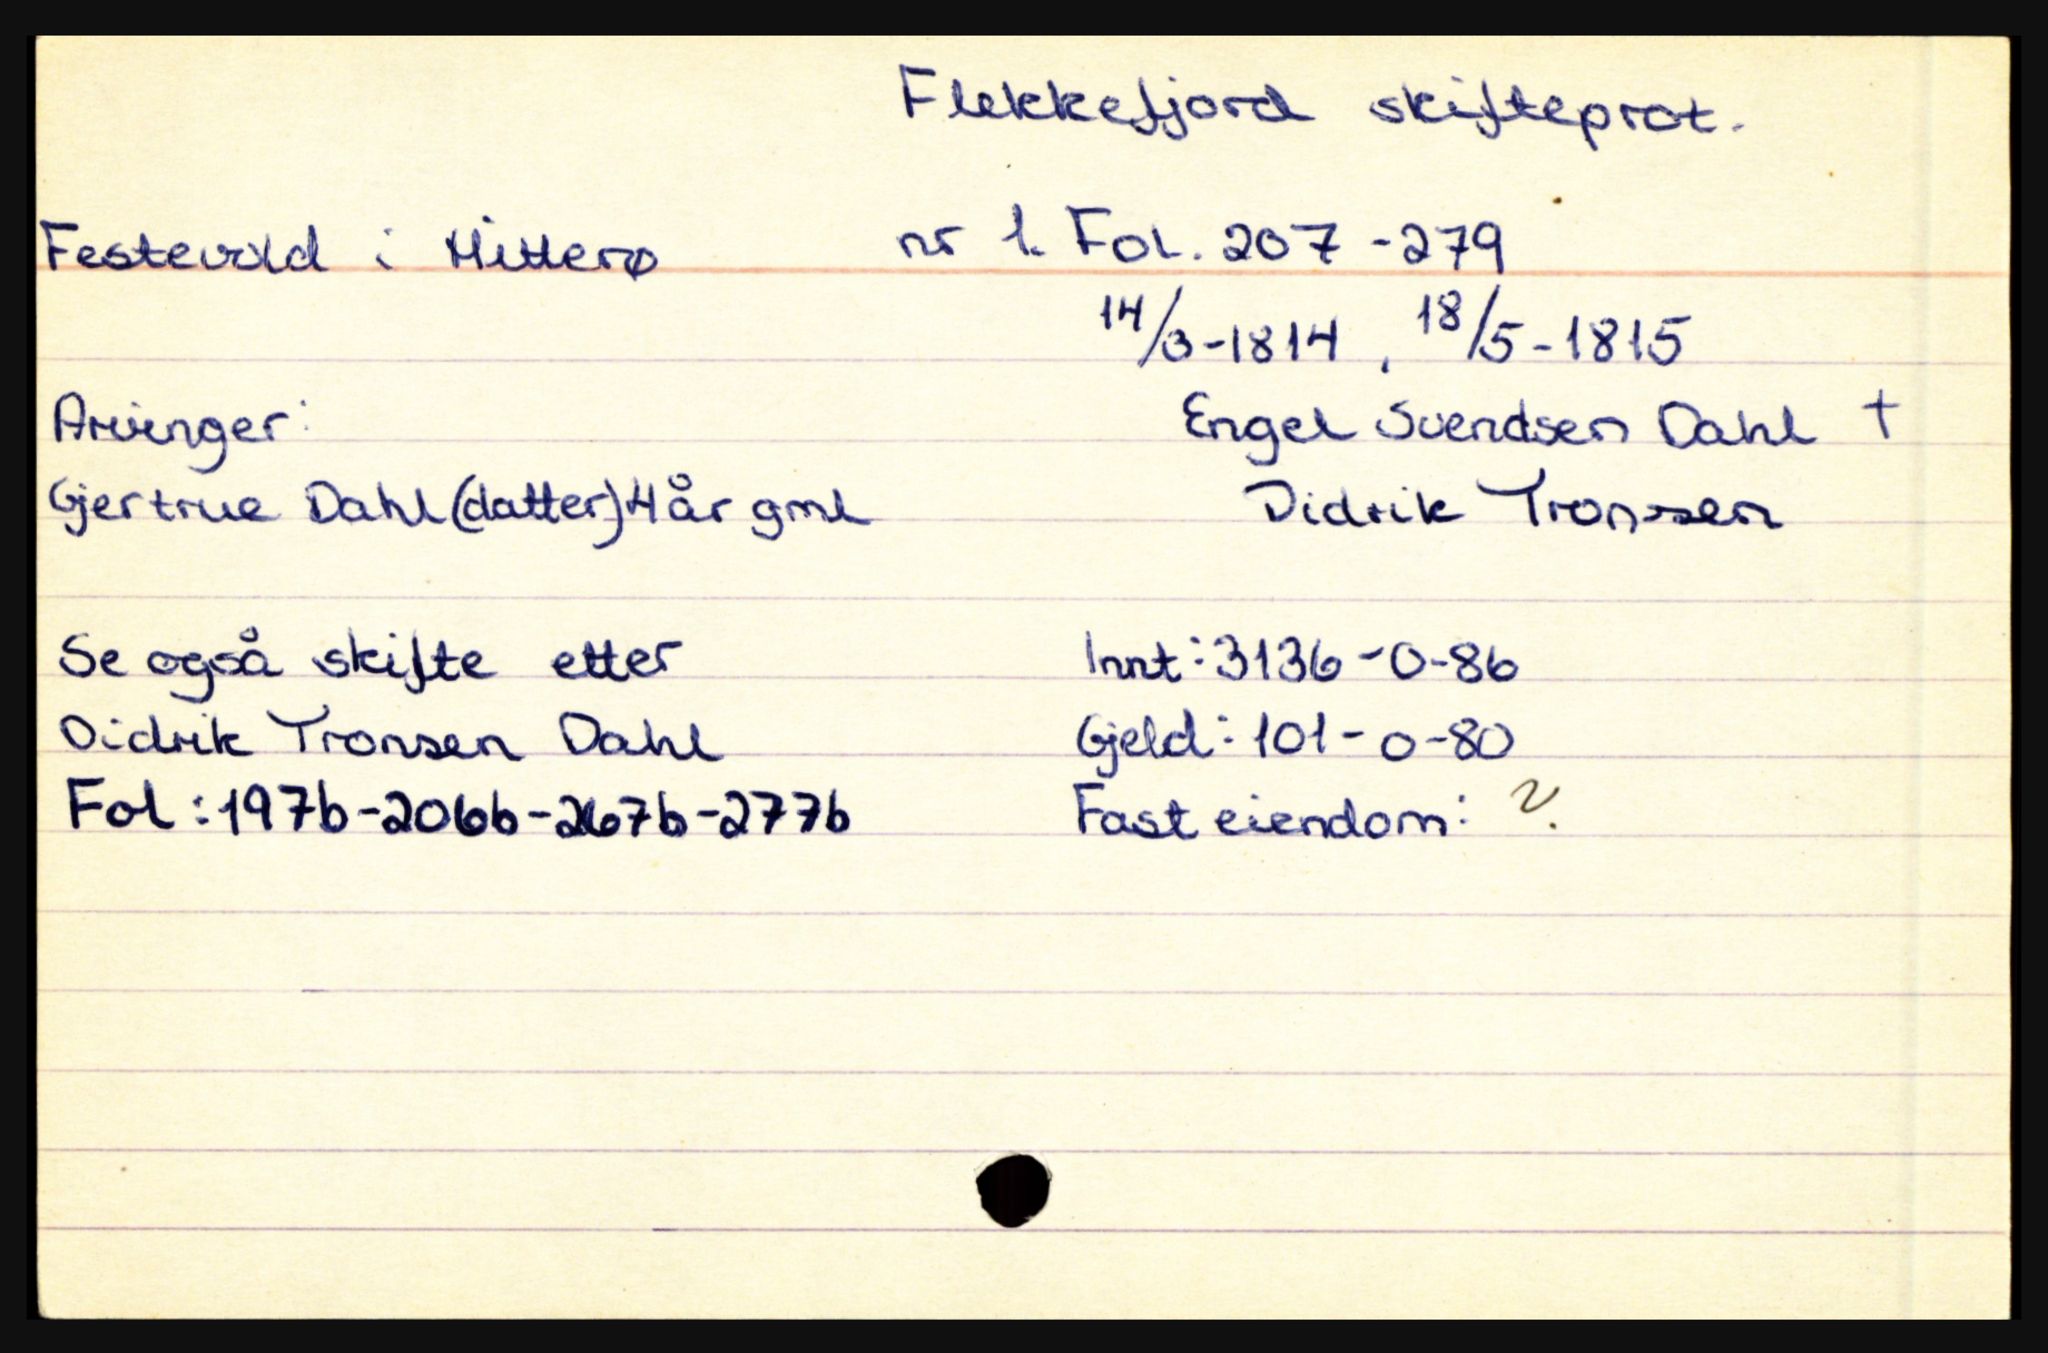 Flekkefjord skifteprot.
Festevold i Hitterø nr 1. Fol. 207-279
14/3-1814, 18/5-1815
Arvinger: Engel Svendsen Dahl †
Gjertrue Dahl (datter) 4 år gml Didrik Tronsen
Se også skifte etter Innt: 3136-0-86
Didrik Tronsen Dahl Gjeld: 101-0-80
Fol: 197b-206b-267b-277b Fast eiendom: ?